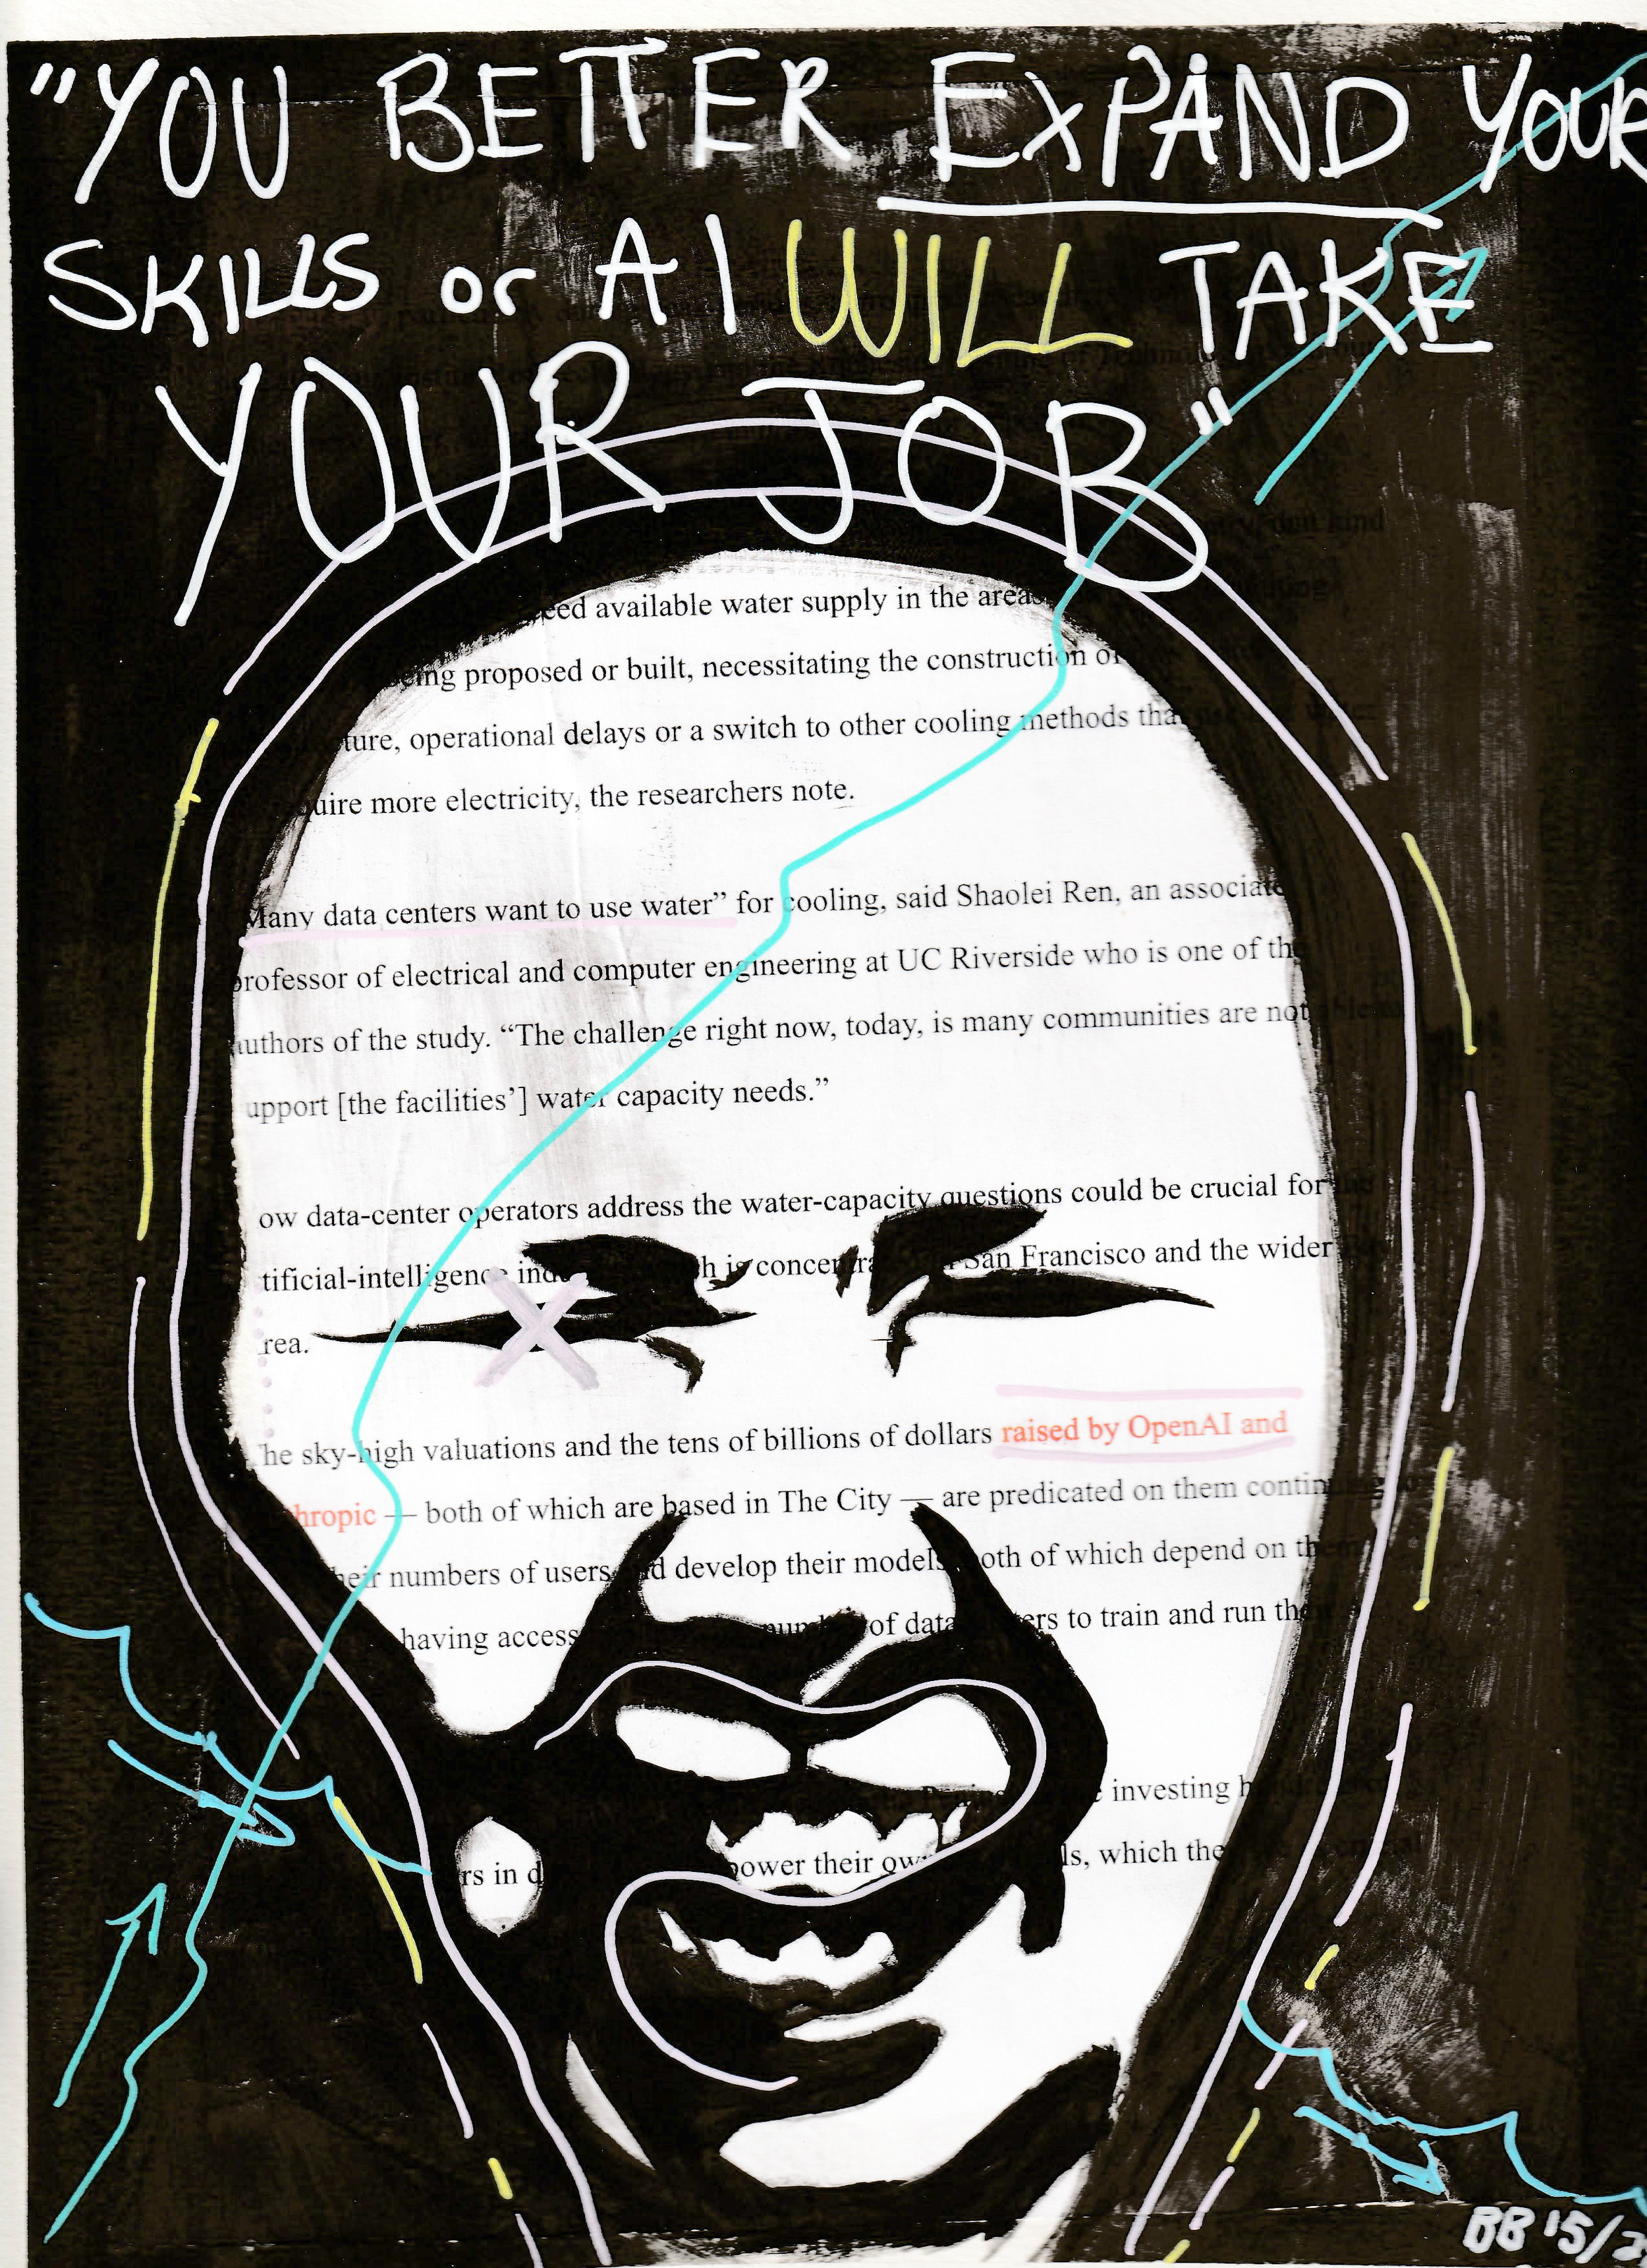 "YOU BETTER EXPAND YOUR
SKILLS or AI WILL TAKE
YOUR JOB"
available water supply in the areas
proposed or built, necessitating the construction of
ture, operational delays or a switch to other cooling methods that
uire more electricity, the researchers note.
Many data centers want to use water” for cooling, said Shaolei Ren, an associate
professor of electrical and computer engineering at UC Riverside who is one of the
authors of the study. “The challenge right now, today, is many communities are not able to
upport [the facilities’] water capacity needs.”
ow data-center operators address the water-capacity questions could be crucial for the
tificial-intelligence h is concentra San Francisco and the wider
rea.
he sky-high valuations and the tens of billions of dollars raised by OpenAI and
hropic — both of which are based in The City — are predicated on them
heir numbers of users and develop their models both of which depend on them
having access of data ers to train and run
investing
rs in d power their own ls, which the
BB '15/